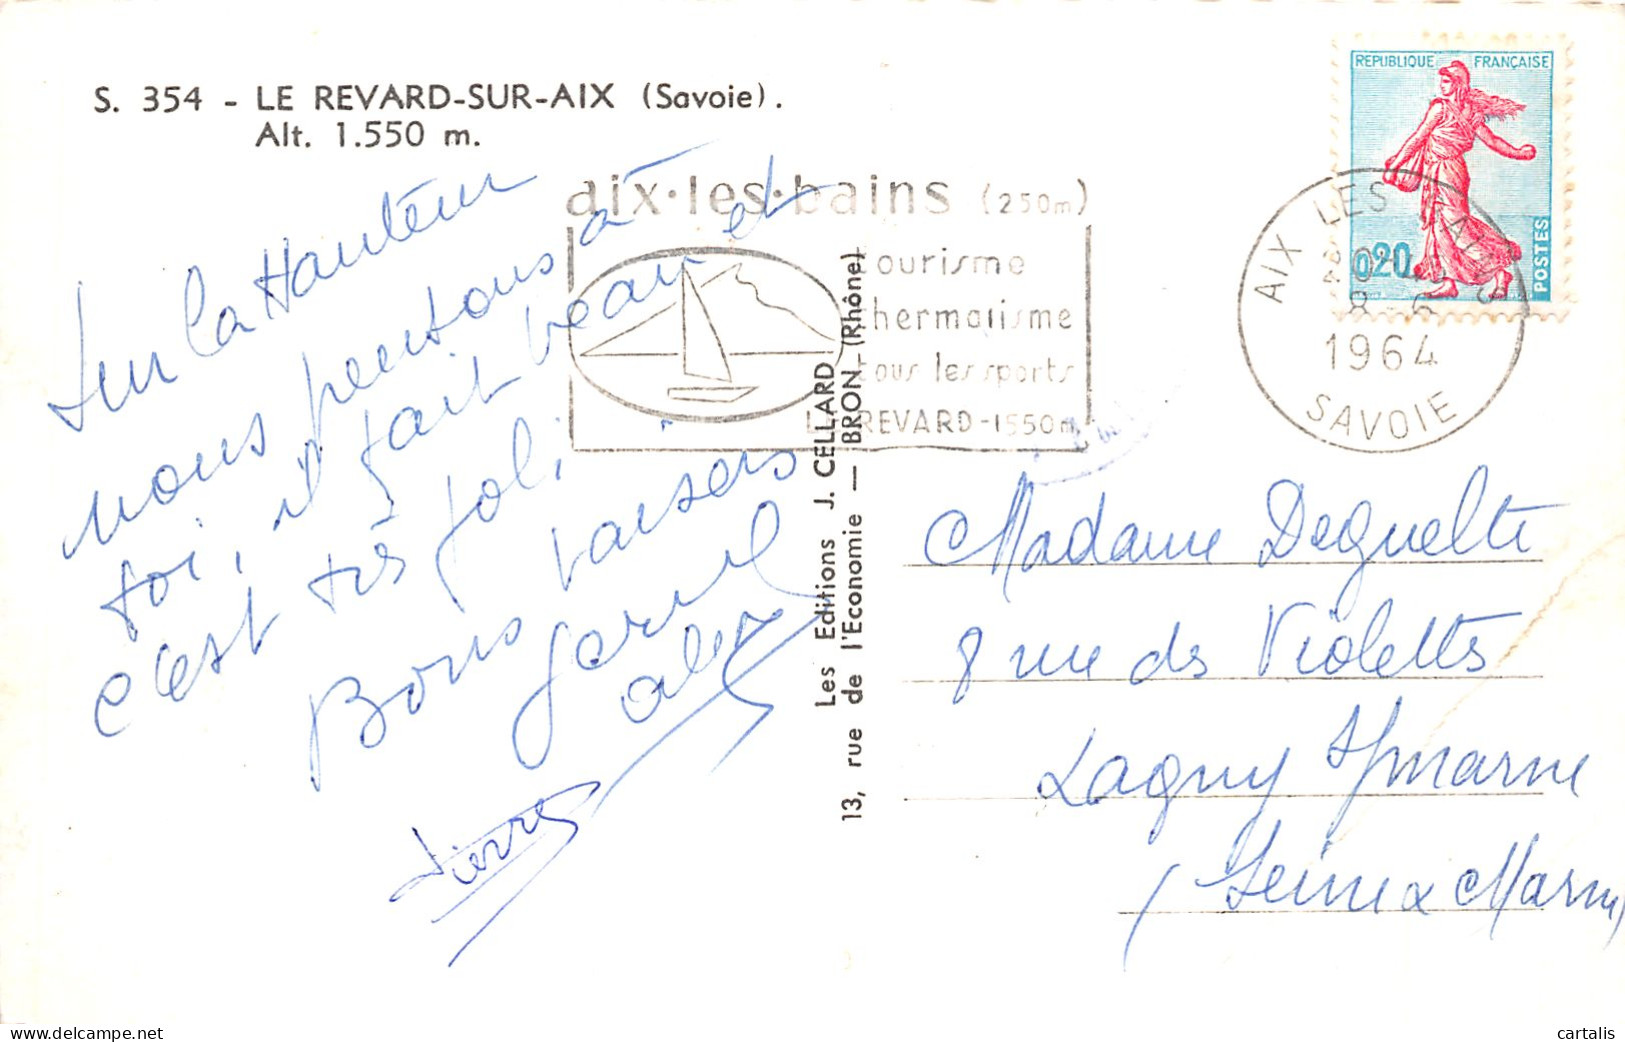 S. 354 - LE REVARD-SUR-AIX (Savoie).
Alt. 1.550 m.
Sur la Hauteur
nous pensons à
toi, il fait beau et
c'est très joli
Bons baisers
Pierre
aix·les·bains (250m)
tourisme
thermalisme
tous les sports
LE REVARD-1550m
Les Editions J. CELLARD
13, rue de l'Economie — BRON (Rhône)
REPUBLIQUE FRANÇAISE
0,20
POSTES
AIX LES BAINS
8-6
1964
SAVOIE
Madame Deguelte
8 rue des Violettes
Lagny s/marne
(Seine & Marne)
cartalis